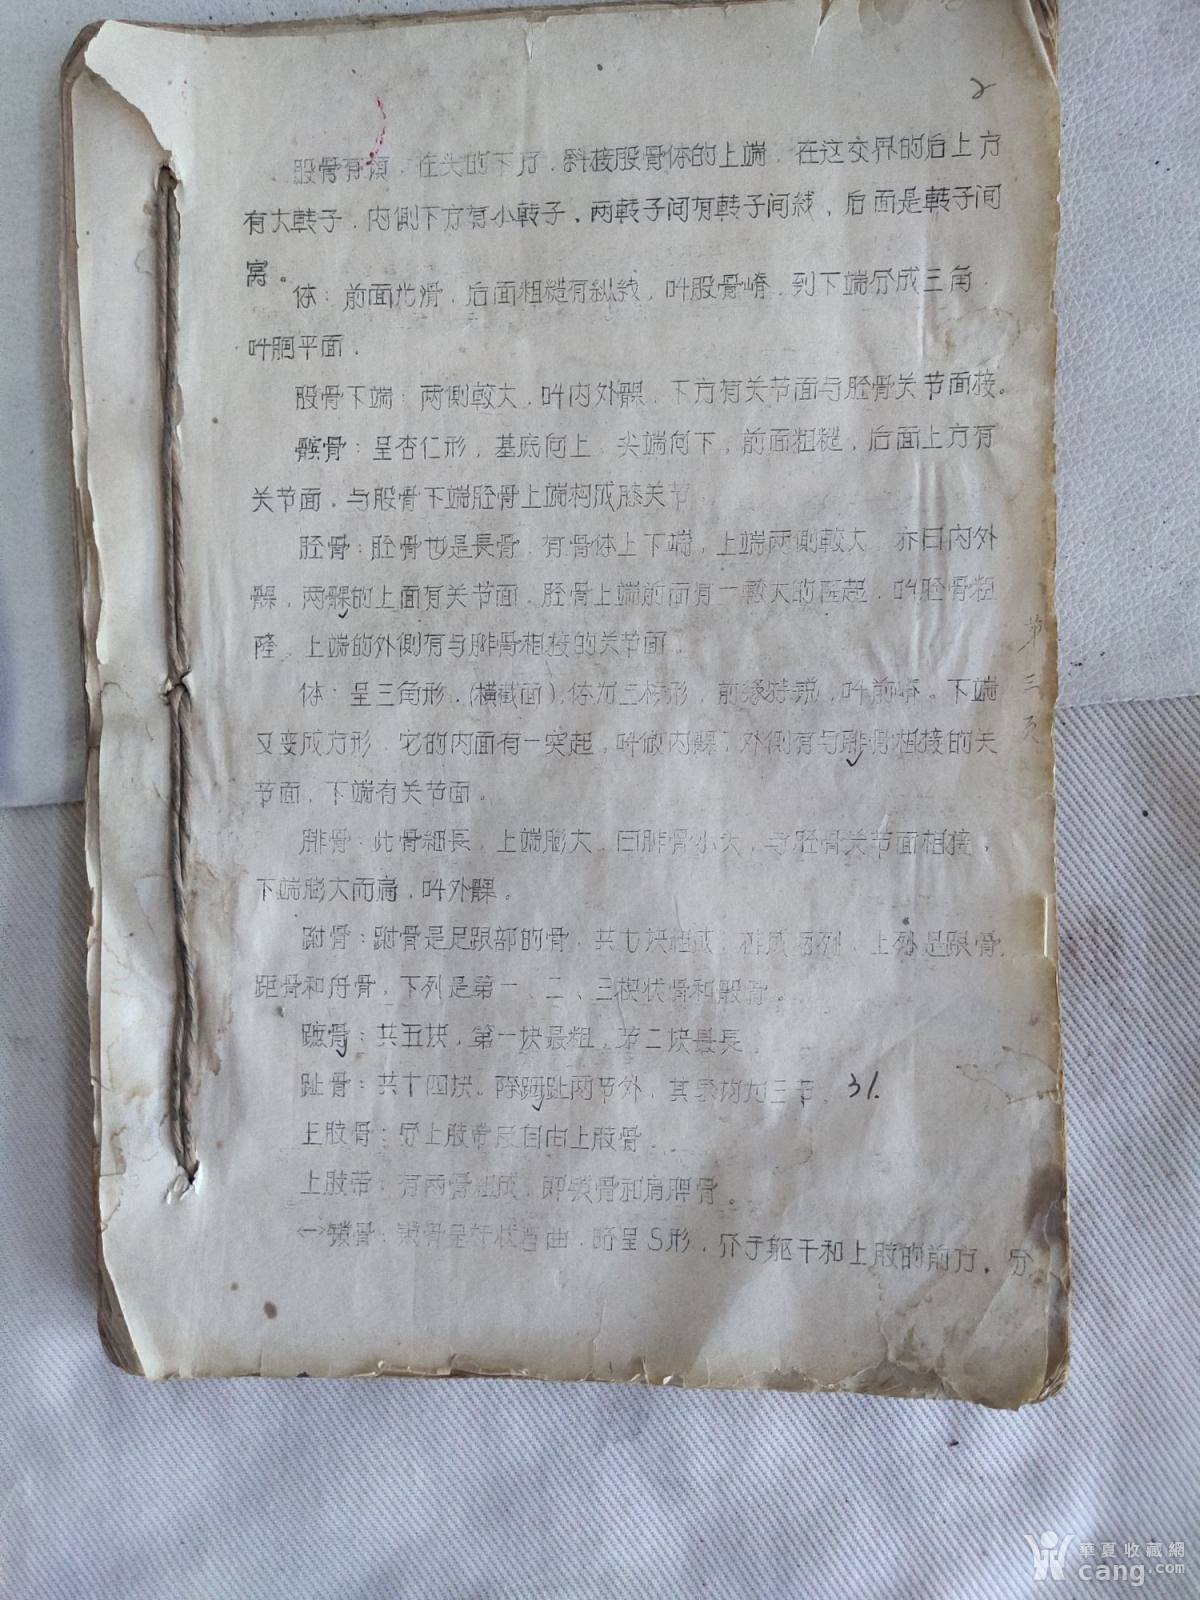 2
股骨有颈，在头的下方，斜接股骨体的上端，在这交界的后上方
有大转子，内侧下方有小转子，两转子间有转子间线，后面是转子间
窝。
体：前面光滑，后面粗糙有纵线，叫股骨嵴，到下端分成三角，
叫腘平面．
股骨下端：两側較大，叫内外髁，下方有关节面与胫骨关节面接。
髌骨：呈杏仁形，基底向上，尖端向下，前面粗糙，后面上方有
关节面，与股骨下端胫骨上端构成膝关节
胫骨：胫骨也是長骨，有骨体上下端，上端两側較大，亦曰内外
髁，两髁的上面有关节面，胫骨上端前面有一較大的隆起，叫胫骨粗
隆，上端的外側有与腓骨相接的关节面。
体：呈三角形，(横截面)，体为三棱形，前缘特锐，叫前嵴。下端
又变成方形，它的内面有一突起，叫做内髁，外側有与腓骨相接的关
节面，下端有关节面。
腓骨：此骨細長，上端膨大，曰腓骨小头，与胫骨关节面相接，
下端膨大而扁，叫外髁。
跗骨：跗骨是足跟部的骨，共七块组成，排成两列，上列是跟骨，
距骨和舟骨，下列是第一、二、三楔状骨和骰骨。
蹠骨：共五块，第一块最粗，第二块最長，
趾骨：共十四块。除拇趾两节外，其余均为三节。31.
上肢骨：分上肢带及自由上肢骨．
上肢带：有两骨组成，即锁骨和肩胛骨。
㈠锁骨：锁骨是杆状弯曲，略呈S形，介于躯干和上肢的前方，分
第三页
華夏收藏網
cang.com